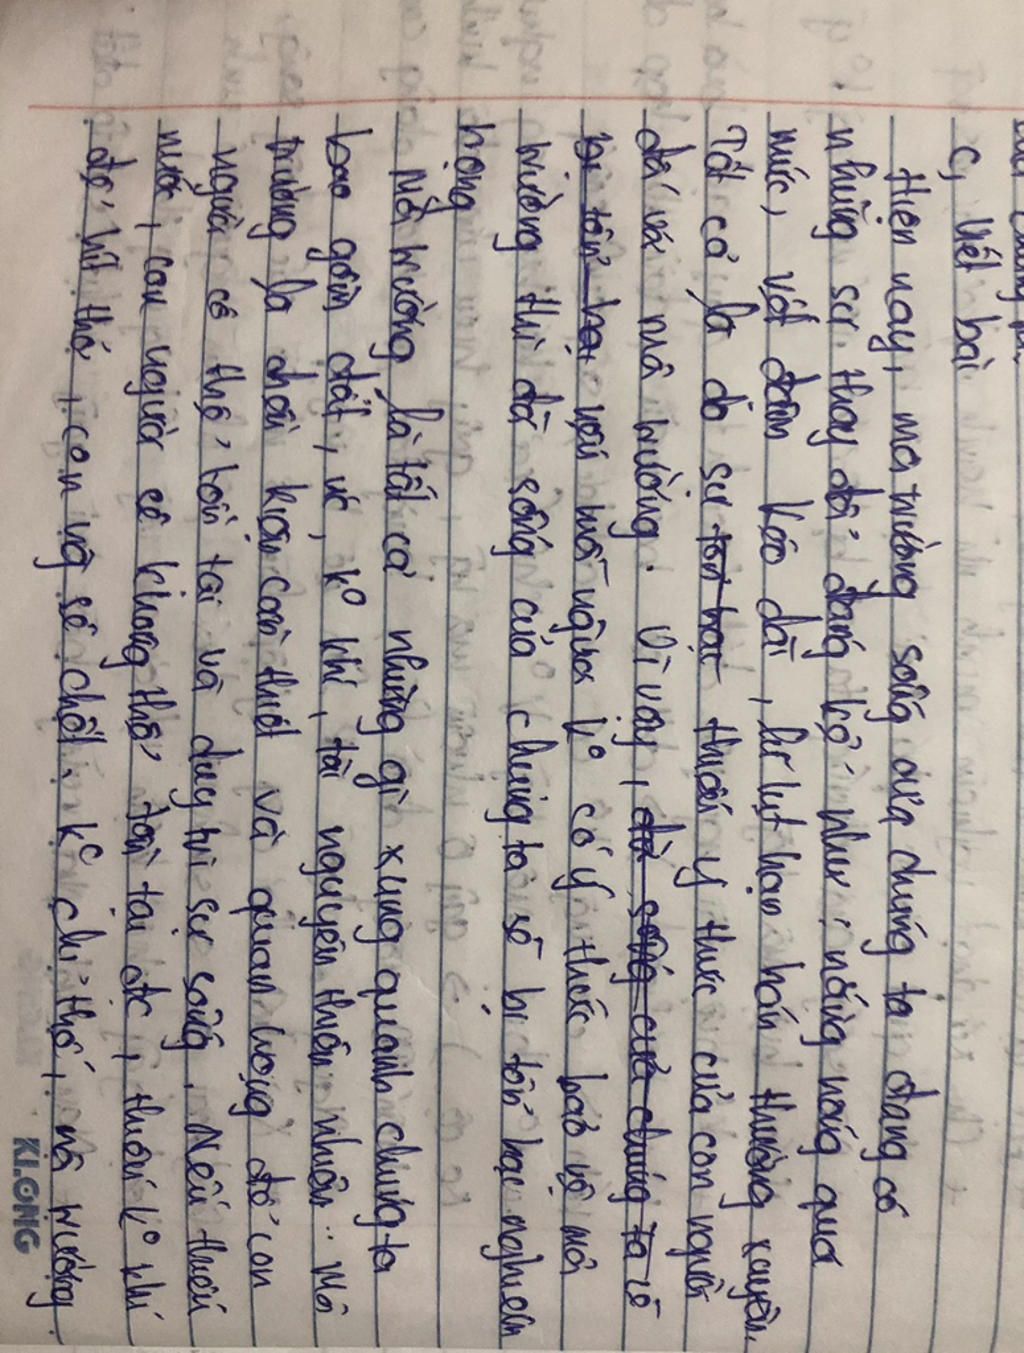 c, Viết bài
Hiện nay, môi trường sống của chúng ta đang có
những sự thay đổi đáng kể như: nắng nóng quá
mức, rét đậm kéo dài, lũ lụt hạn hán thường xuyên.
Tất cả là do sự tổn hại thiếu ý thức của con người
đối với môi trường. Vì vậy, đời sống của chúng ta có
bị tổn hại nếu mỗi người k° có ý thức bảo vệ môi
trường thì đời sống của chúng ta sẽ bị tổn hại nghiêm
trọng
Môi trường là tất cả những gì xung quanh chúng ta
bao gồm đất, nc, k° khí, tài nguyên thiên nhiên.. Môi
trường là điều kiện cần thiết và quan trọng để con
người có thể tồn tại và duy trì sự sống. Nếu thiếu
nước, con người sẽ không thể tồn tại đc, thiếu k° khí
để hít thở, con ng sẽ chết. K° chỉ thế, môi trường
KLONG